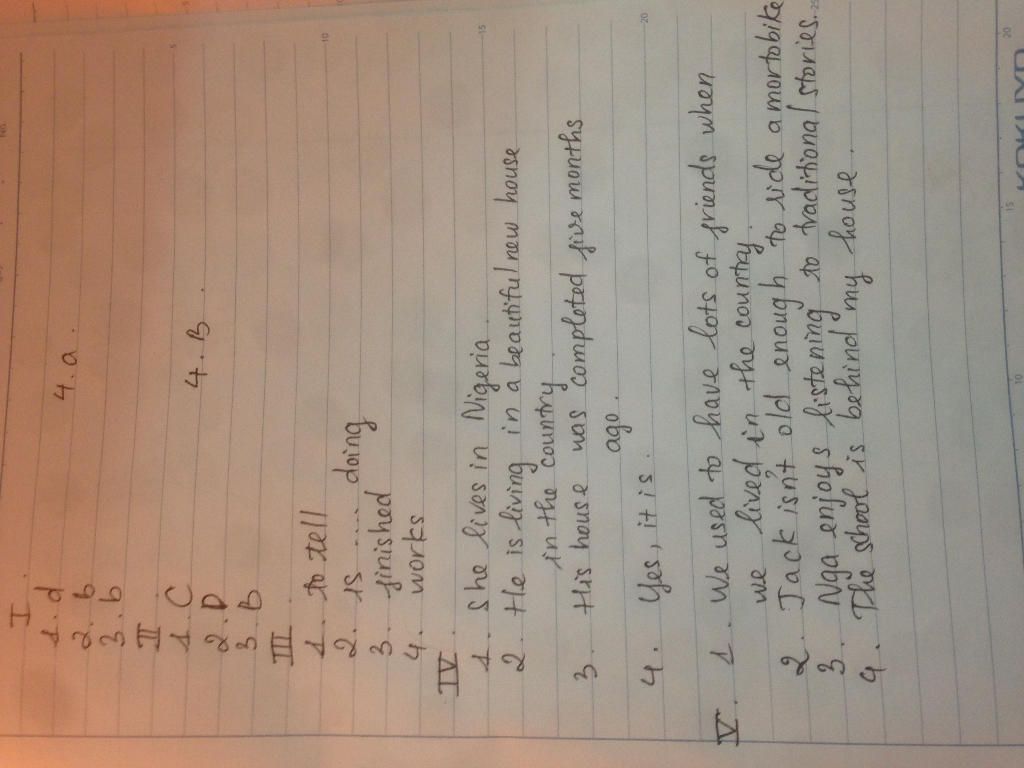 I.
1. d 4. a.
2. b
3. b
II
1. C 4. B.
2. D
3. B
III
1. to tell
2. is ..... doing
3. finished
4. works
IV.
1. She lives in Nigeria.
2. He is living in a beautiful new house
in the country.
3. His house was completed five months
ago.
4. Yes, it is.
V. 1. We used to have lots of friends when
we lived in the country.
2. Jack isn't old enough to ride a mortobike
3. Nga enjoys listening to traditional stories.
4. The shool is behind my house.